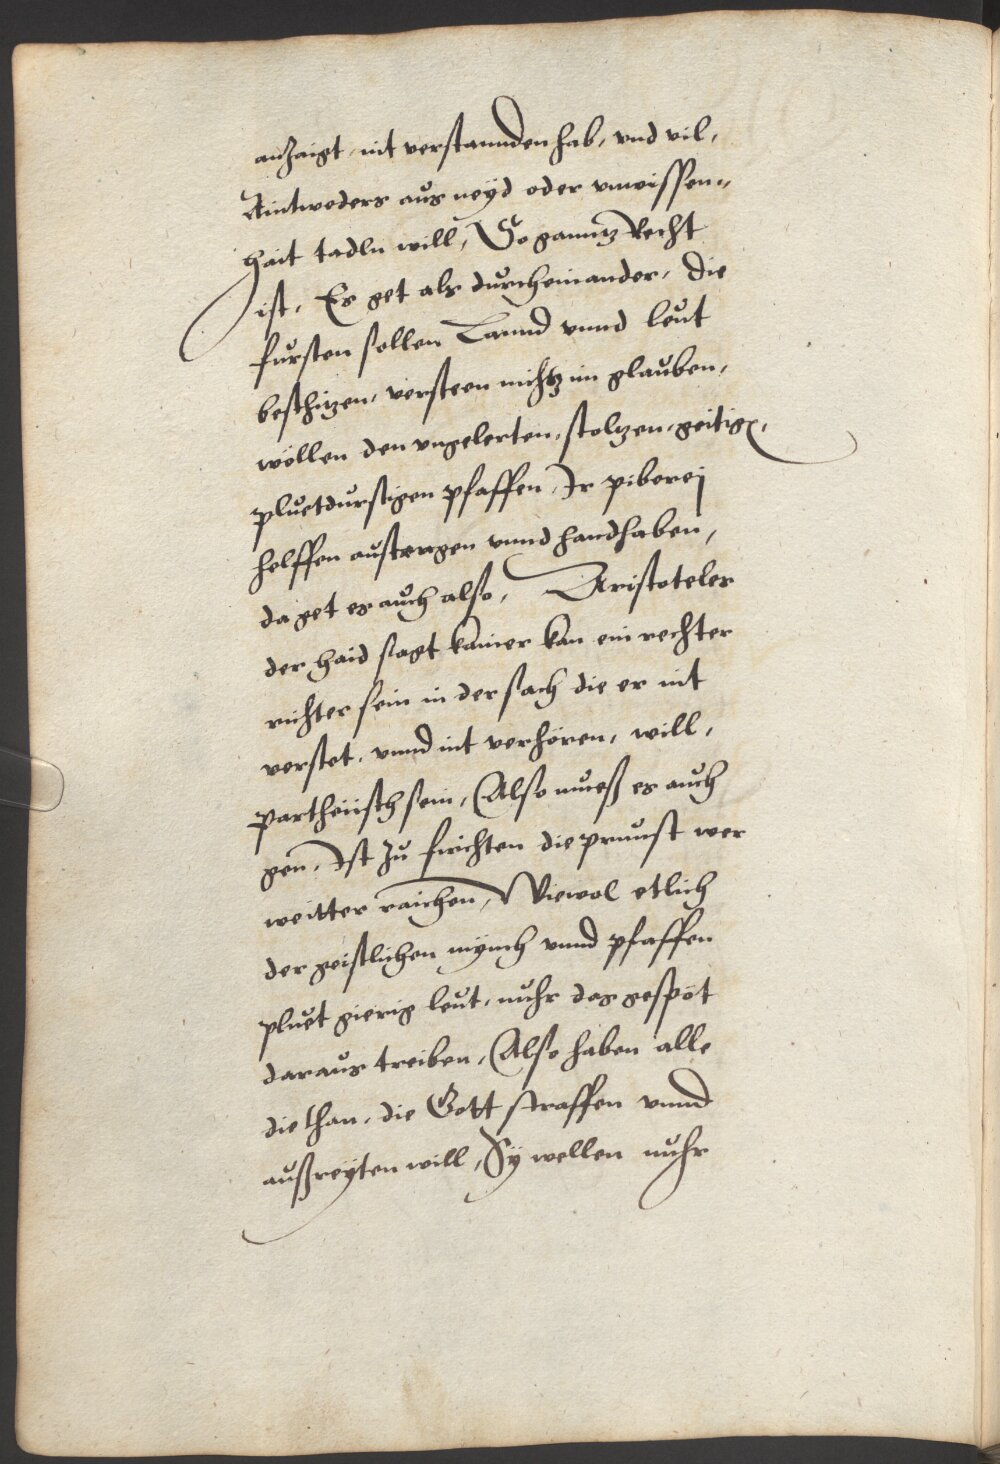 anzaigt, nit verstannden hab, vnd vil,
Aintweders aus neyd oder vnwissen=
hait tadln will, So ganntz Recht
ist, Es get als durcheinander, die
fursten sollen Lannd vnnd leut
beschitzen, versteen nichtz im glauben,
wöllen den vngelerten, stoltzen, geitign,
pluetdurstigen pfaffen, Ir piberej
helffen austragen vnnd handhaben,
da get es auch also, Aristoteles
der haid sagt kainer kan ein rechter
richter sein in der sach die er nit
verstet, vnnd nit verhören, will,
partheiisch sein, Also mueß es auch
gen, Ist zu firichten die prunst wer
weitter raichen, Wiewol etlich
der geistlichen münch vnnd pfaffen
pluet gierig leut, nuhr das gespöt
daraus treiben, Also haben alle
die than, die Gott straffen vnnd
außreyten will, Sy wellen nuhr